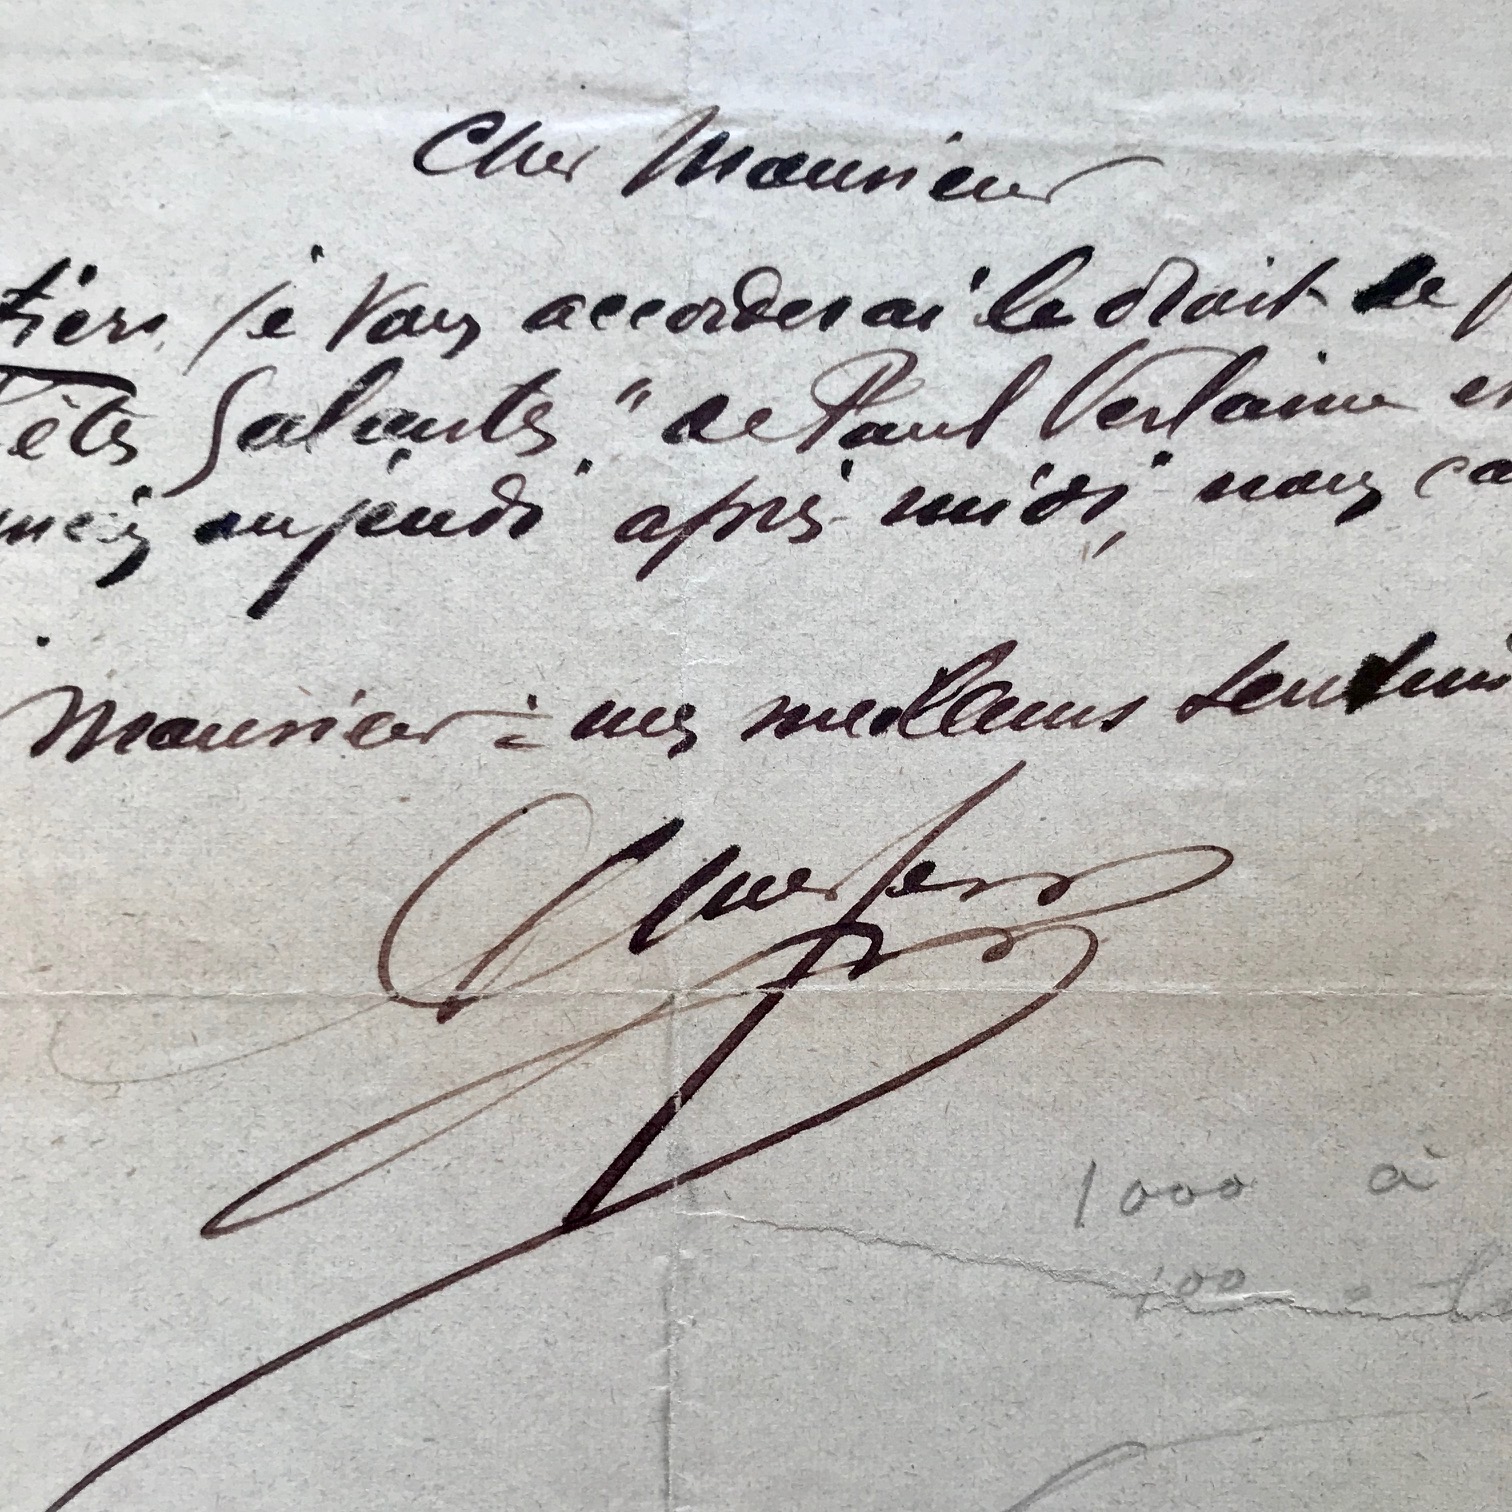 Cher Monsieur
tiers, je vous accorderai le droit de p
êtes Galantes" de Paul Verlaine et
jeudi après-midi, nous ca
Monsieur mes meilleurs sentim
1000 à
100